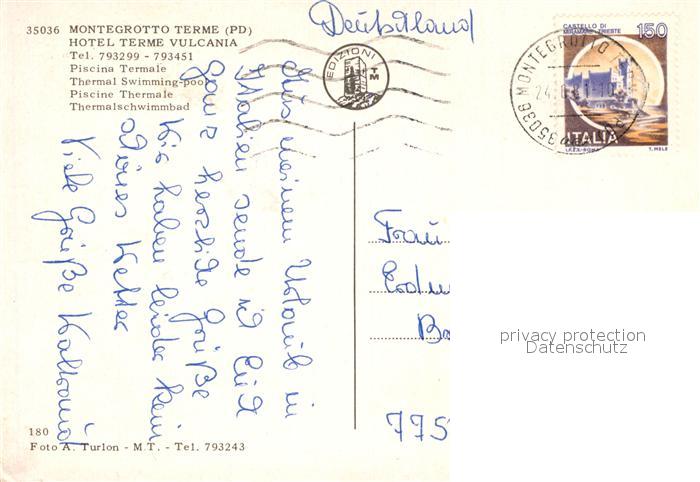 Deutschland
35036 MONTEGROTTO TERME (PD)
HOTEL TERME VULCANIA
Tel. 793299 - 793451
Piscina Termale
Thermal Swimming-pool
Piscine Thermale
Thermalschwimmbad
EDIZIONI
TM
CASTELLO DI
MIRAMARE-TRIESTE
150
ITALIA
I.P.Z.S.-ROMA
T. MELE
35036 MONTEGROTTO
Aus meinem Urlaub in
Italien sende ich Euch
Ganz herzliche Grüße
Wir haben leider kein
schönes Wetter
Viele Grüße Waltraud
Frau
Erdm
Ba
775
privacy protection
Datenschutz
180
Foto A. Turlon - M.T. - Tel. 793243